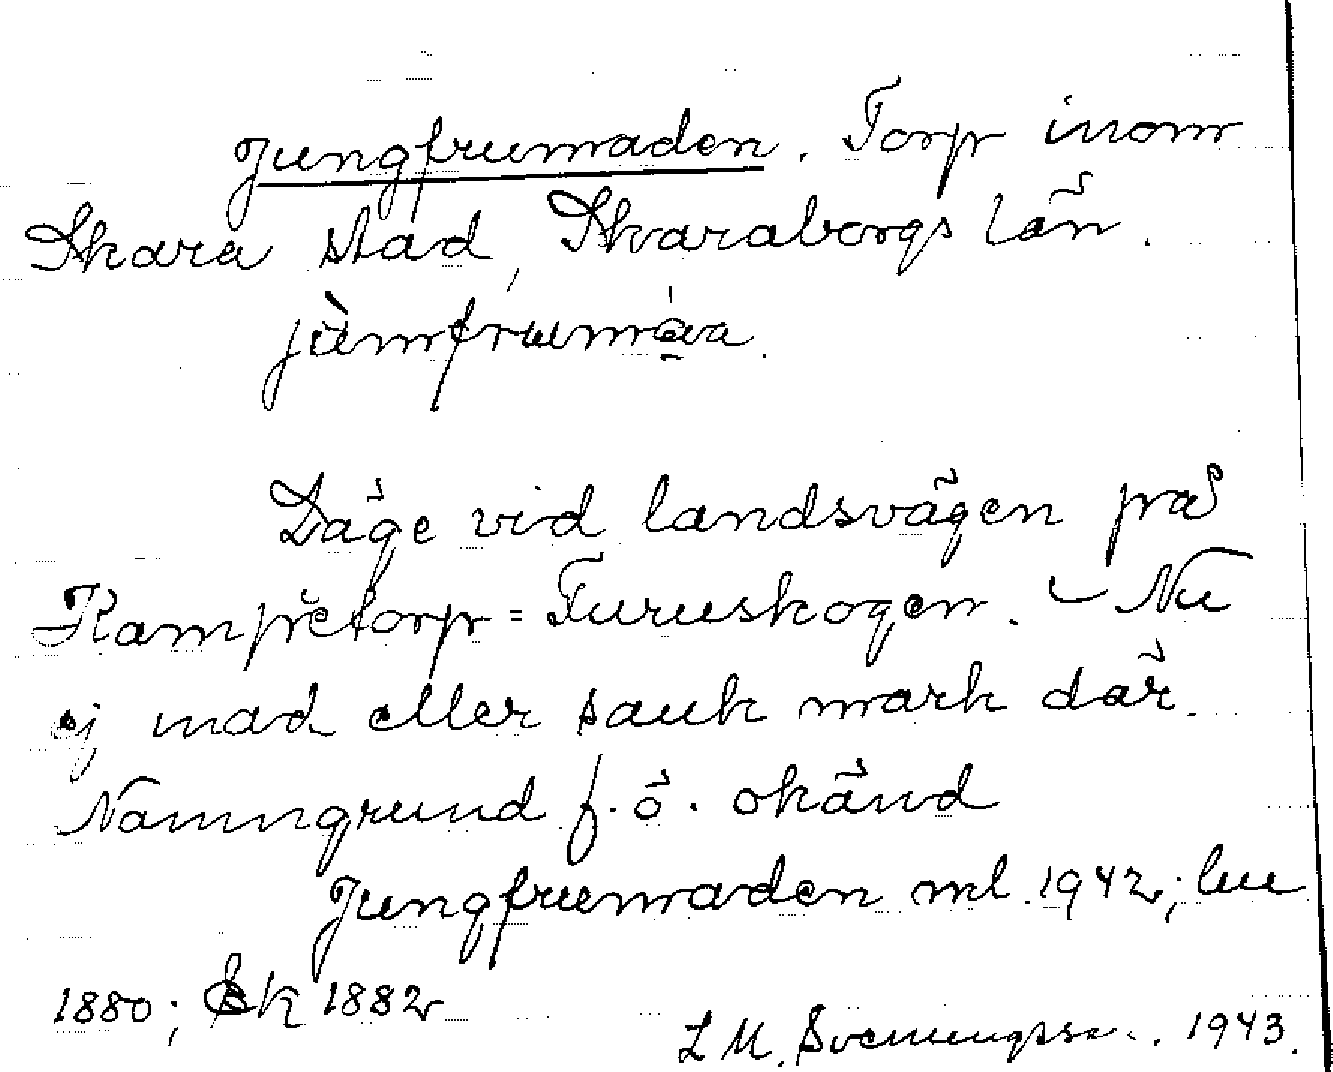 Jungfrumaden. Torp inom
Skara stad, Skaraborgs län.
jùmfrumáa.
Läge vid landsvägen på
Kampetorp=Furuskogen. – Nu
ej mad eller sank mark där.
Namngrund f. ö. okänd
Jungfrumaden ml 1942; lu
1880; Ek 1882
L M. Svenungsson. 1943.